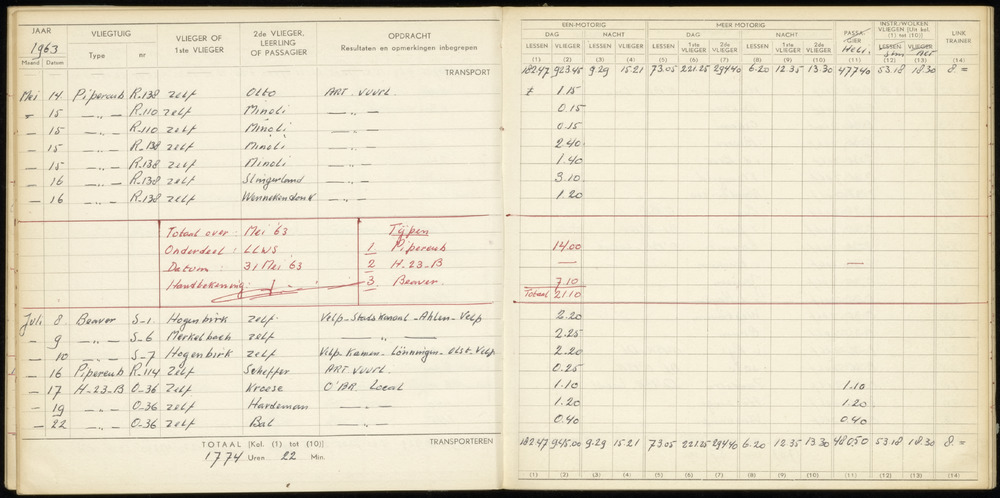 JAAR VLIEGTUIG VLIEGER OF 1ste VLIEGER 2de VLIEGER, LEERLING OF PASSAGIER OPDRACHT
1963 Type nr Resultaten en opmerkingen inbegrepen
Maand Datum TRANSPORT
Mei 14 Pipercub R-138 zelf Otto ART. VUURL.
— 15 —„— R-110 zelf Minoli —„—
— 15 —„— R-110 zelf Minoli —„—
— 15 —„— R-138 zelf Minoli —„—
— 15 —„— R-138 zelf Minoli —„—
— 16 —„— R-138 zelf Slingerland —„—
— 16 —„— R-138 zelf Wennekendonk —„—
Totaal over : Mei 63 Typen
Onderdeel : LLWS 1 Pipercub
Datum : 31 Mei 63 2 H-23-B
Handtekening: 3 Beaver
Juli 8 Beaver S-1 Hogenbirk zelf Velp-Stadskanaal-Ahlen-Velp
— 9 —„— S-6 Merkelbach zelf —„—
— 10 —„— S-7 Hogenbirk zelf Velp-Kamen-Lönningen-Olst-Velp
— 16 Pipercub R-114 zelf Scheffer ART VUURL.
— 17 H-23-B O-36 zelf Kroese O'BR. Local
— 19 —„— O-36 zelf Hardeman —„—
— 22 —„— O-36 zelf Bal —„—
TOTAAL [Kol. (1) tot (10)] TRANSPORTEREN
1774 Uren 22 Min.
EEN-MOTORIG MEER MOTORIG PASSAGIER HELI. INSTR/WOLKEN VLIEGEN (Uit kol. (1) tot (10)) LINK TRAINER
DAG NACHT DAG NACHT
LESSEN VLIEGER LESSEN VLIEGER LESSEN 1ste VLIEGER 2de VLIEGER LESSEN 1ste VLIEGER 2de VLIEGER LESSEN sim VLIEGER act
(1) (2) (3) (4) (5) (6) (7) (8) (9) (10) (11) (12) (13) (14)
182.47 923.45 9.29 15.21 73.05 221.25 294.40 6.20 12.35 13.30 477.40 53.18 18.30 8 =
1.15
0.15
0.15
2.40
1.40
3.10
1.20
14.00
— —
7.10
Totaal 21.10
2.20
2.25
2.20
0.25
1.10 1.10
1.20 1.20
0.40 0.40
182.47 945.00 9.29 15.21 73.05 221.25 294.40 6.20 12.35 13.30 480.50 53.18 18.30 8 =
(1) (2) (3) (4) (5) (6) (7) (8) (9) (10) (11) (12) (13) (14)